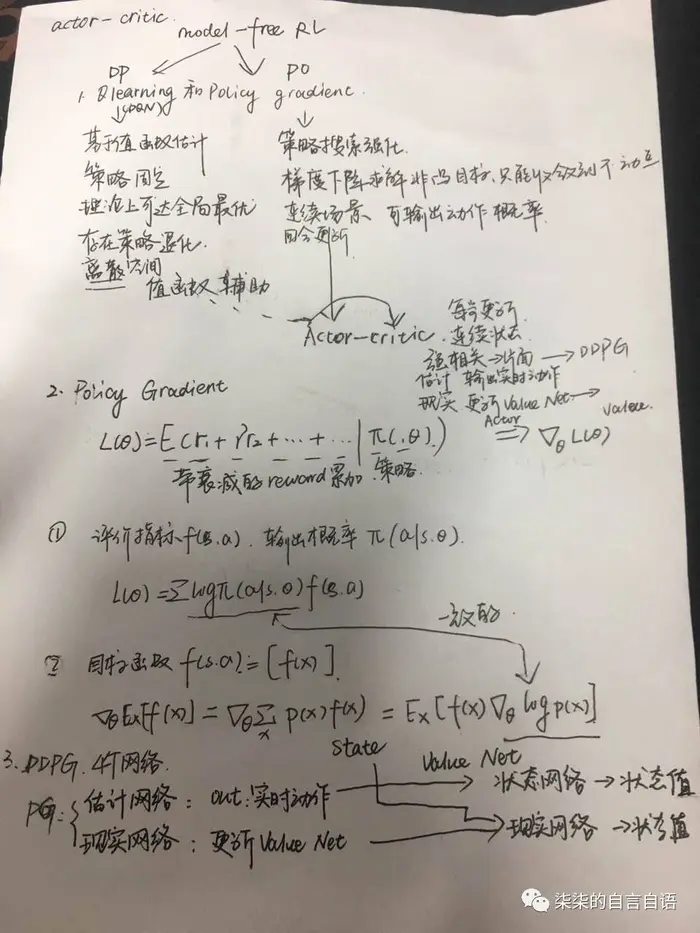 actor-critic.
model-free RL
DP PO
1. Qlearning 和 Policy gradient.
(DQN)
基于值函数估计
策略固定
理论上可达全局最优
存在策略退化.
离散空间
策略搜索强化.
梯度下降求解非凸目标,只能收敛到不动点
连续场景 可输出动作概率.
回合更新
值函数辅助
Actor-critic
每步更新
连续状态
强相关→片面 → DDPG
估计 输出实时动作
现实 更新Value Net →
2. Policy Gradient
L(θ)=E(r₁+γr₂+…+…|π(,θ)) Actor ⇒ ∇θL(θ) Value.
带衰减的reward累加 策略.
① 评价指标f(s.a). 输出概率 π(a|s.θ).
L(θ)=Σlogπ(a|s.θ)f(s.a)
一致的.
② 目标函数 f(s.a)=[f(x)].
∇θEx[f(x)]=∇θΣx p(x)f(x) = Ex[f(x)∇θ log p(x)]
3. DDPG. 4个网络. state Value Net
PG: { 估计网络: out:实时动作 → 状态网络→状态值
现实网络: 更新Value Net → 现实网络→状态值
柒柒的自言自语